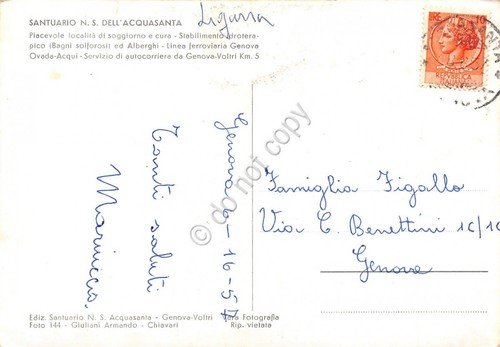 SANTUARIO N. S. DELL'ACQUASANTA
Piacevole località di soggiorno e cura - Stabilimento idrotera-
pico (Bagni solforosi) ed Alberghi - Linea Ferroviaria Genova
Ovada-Acqui - Servizio di autocorriera da Genova-Voltri Km. 5
Liguria
10
REPUBBLICA
ITALIANA
Genova 6-16-57
Tanti saluti
do not copy
Famiglia Figallo
Via C. Benettini 1c/10
Genova
Ediz. Santuario N. S. Acquasanta - Genova-Voltri
Foto 144 - Giuliani Armando - Chiavari
Vera Fotografia
Rip. vietata